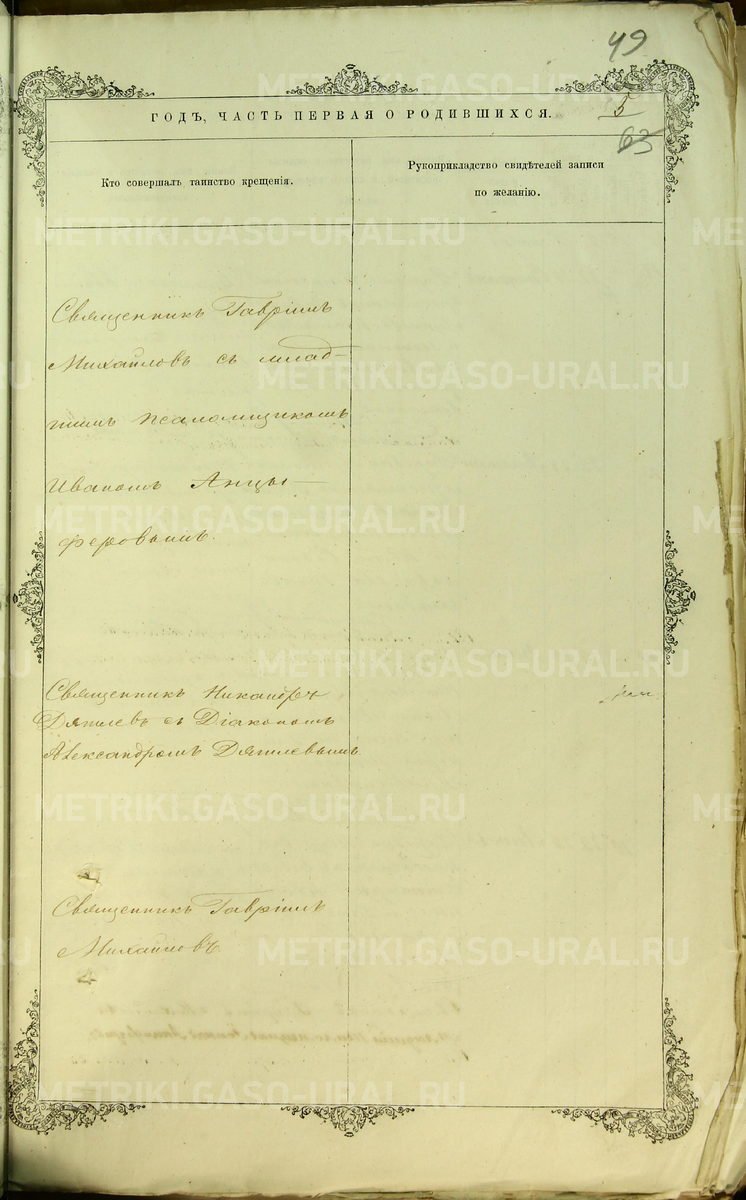 49
ГОДЪ, ЧАСТЬ ПЕРВАЯ О РОДИВШИХСЯ.
5
63
Кто совершалъ таинство крещенія.
Рукоприкладство свидѣтелей записи
по желанію.
Священникъ Гавріилъ
Михайловъ съ млад-
шимъ псаломщикомъ
Иваномъ Анцы-
феровымъ.
Священникъ Никаноръ
Дягилевъ съ Діакономъ
Александромъ Дягилевымъ.
Священникъ Гавріилъ
Михайловъ
METRIKI.GASO-URAL.RU